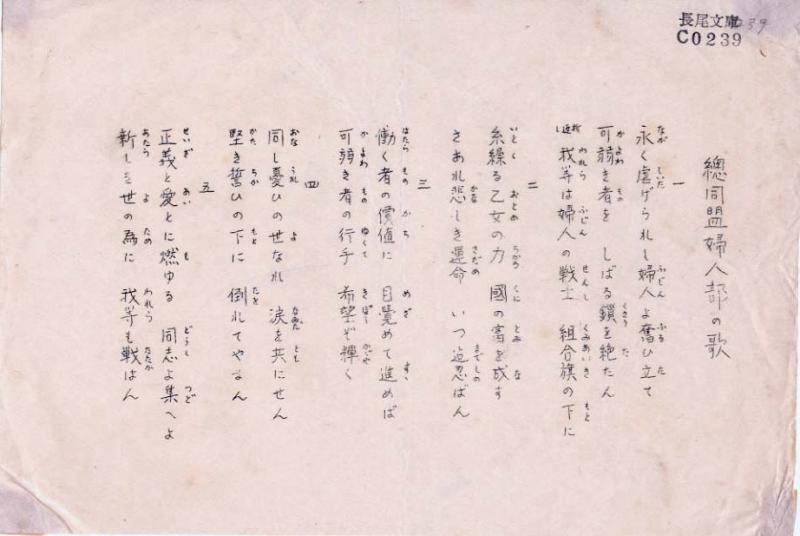 長尾文庫
C0239
239
總同盟婦人部の歌
一
永く虐げられし婦人よ奮ひ立て
可弱き者を しばる鎖を絶たん
我等は婦人の戦士 組合旗の下に
二
糸繰る乙女の力 國の富を成す
さあれ悲しき運命 いつ迄忍ばん
三
働く者の價値に 目覺めて進めば
可弱き者の行手 希望ぞ輝く
四
同じ憂ひの世なれ 涙を共にせん
堅き誓ひの下に 倒れてやまん
五
正義と愛とに燃ゆる 同志よ集へよ
新しき世の為に 我等も戦はん